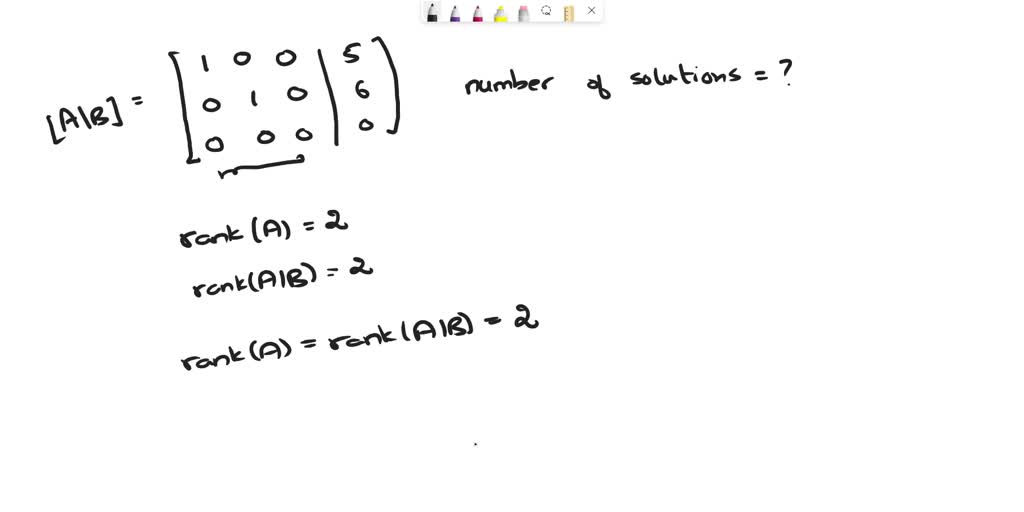 1 0 0 | 5
[A|B] = 0 1 0 | 6
0 0 0 | 0
number of solutions = ?
rank(A) = 2
rank(A|B) = 2
rank(A) = rank(A|B) = 2